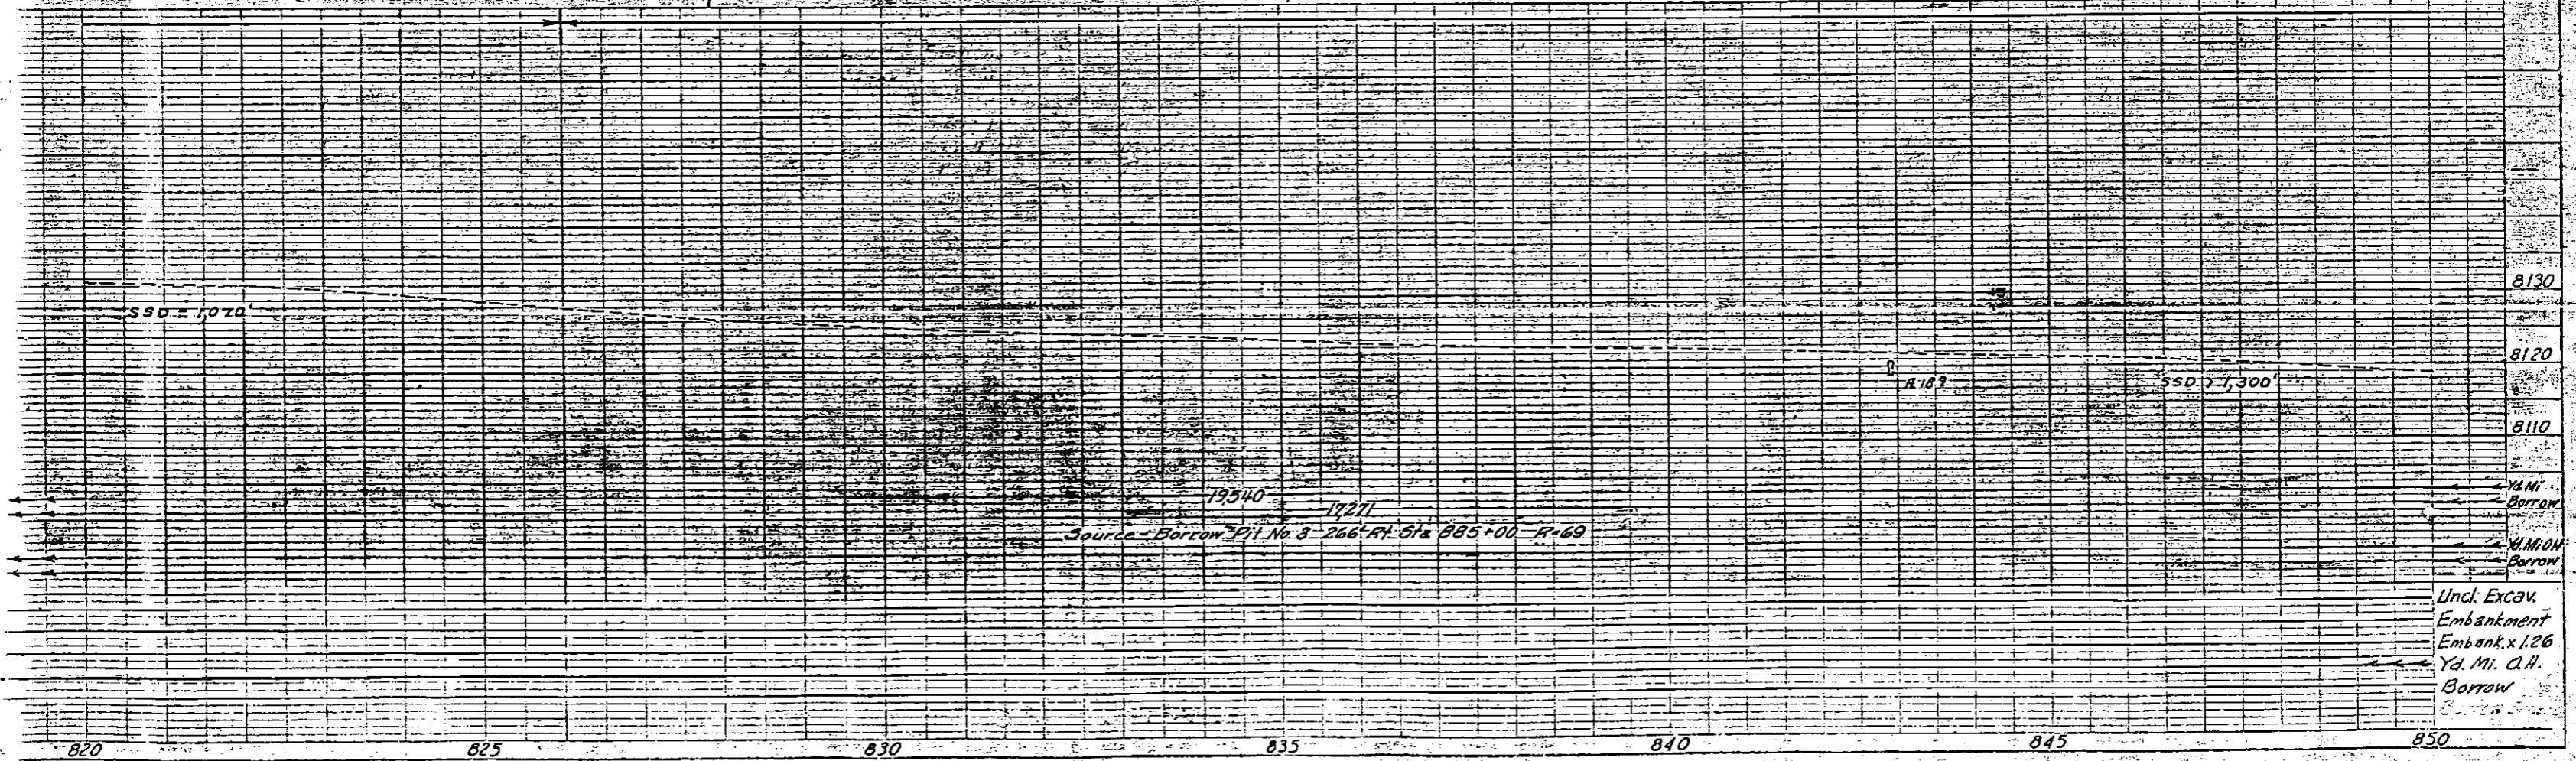 8130
SSD = 1,070'
8120
A 189
SSD > 1,300'
8110
19,540
17,271
Source - Borrow Pit No. 3 - 266' Rt. Sta. 885+00 R=69
Yd. Mi
Borrow
Yd. Mi OH
Borrow
Uncl. Excav.
Embankment
Embank. x 1.26
Yd. Mi. O.H.
Borrow
820 825 830 835 840 845 850